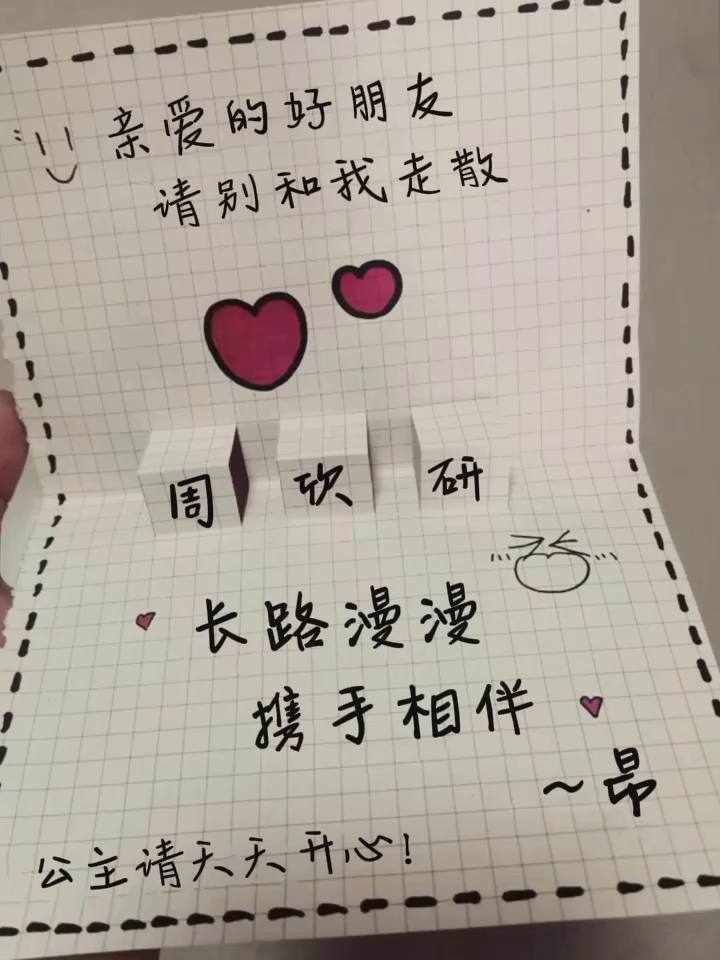 亲爱的好朋友
请别和我走散
周欣研
长路漫漫
携手相伴
~昂
公主请天天开心!